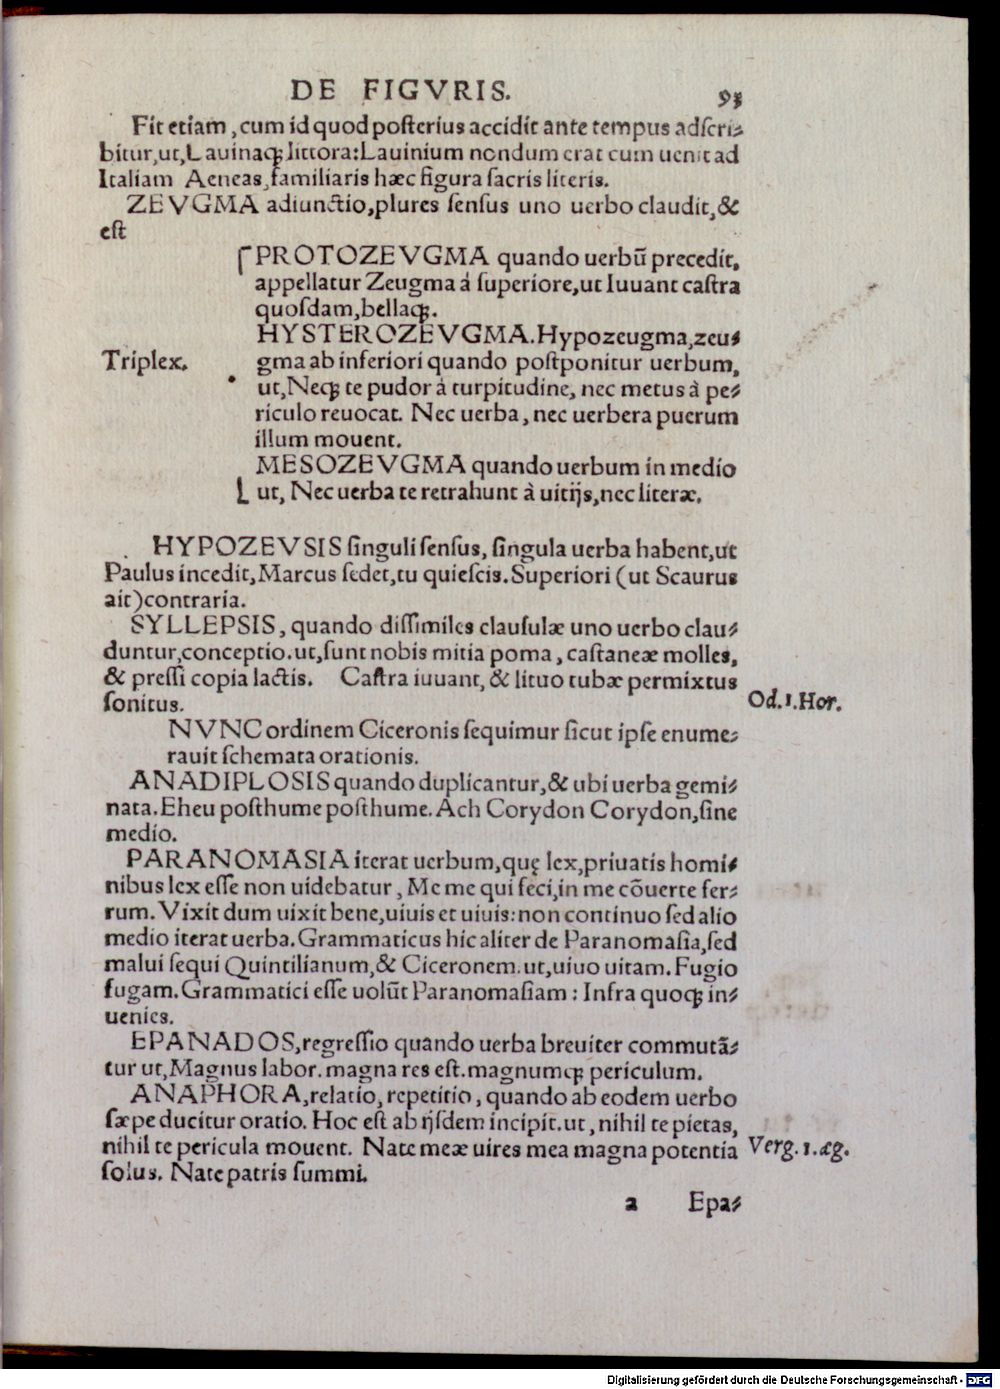 DE FIGVRIS.
93
Fit etiam, cum id quod posterius accidit ante tempus adscri-
bitur, ut, Lauinaqꝫ littora: Lauinium nondum erat cum uenit ad
Italiam Aeneas, familiaris hæc figura sacris literis.
ZEVGMA adiunctio, plures sensus uno uerbo claudit, &
est
PROTOZEVGMA quando uerbũ precedit,
appellatur Zeugma á superiore, ut Iuuant castra
quosdam, bellaqꝫ.
HYSTEROZEVGMA. Hypozeugma, zeu-
Triplex.
gma ab inferiori quando postponitur uerbum,
ut, Neqꝫ te pudor à turpitudine, nec metus à pe-
riculo reuocat. Nec uerba, nec uerbera puerum
illum mouent.
MESOZEVGMA quando uerbum in medio
ut, Nec uerba te retrahunt à uitijs, nec literæ.
HYPOZEVSIS singuli sensus, singula uerba habent, ut
Paulus incedit, Marcus sedet, tu quiescis. Superiori (ut Scaurus
ait) contraria.
SYLLEPSIS, quando dissimiles clausulæ uno uerbo clau-
duntur, conceptio. ut, sunt nobis mitia poma, castaneæ molles,
& pressi copia lactis. Castra iuuant, & lituo tubæ permixtus
sonitus.
Od. 1. Hor.
NVNC ordinem Ciceronis sequimur sicut ipse enume-
rauit schemata orationis.
ANADIPLOSIS quando duplicantur, & ubi uerba gemi-
nata. Eheu posthume posthume. Ach Corydon Corydon, sine
medio.
PARANOMASIA iterat uerbum, quę lex, priuatis homi-
nibus lex esse non uidebatur, Me me qui feci, in me cõuerte fer-
rum. Vixit dum uixit bene, uiuis et uiuis: non continuo sed alio
medio iterat uerba. Grammaticus hic aliter de Paranomasia, sed
malui sequi Quintilianum, & Ciceronem. ut, uiuo uitam. Fugio
fugam. Grammatici esse uolũt Paranomasiam: Infra quoqꝫ in-
uenies.
EPANADOS, regressio quando uerba breuiter commutã-
tur ut, Magnus labor. magna res est. magnumqꝫ periculum.
ANAPHORA, relatio, repetitio, quando ab eodem uerbo
sæpe ducitur oratio. Hoc est ab ijsdem incipit. ut, nihil te pietas,
nihil te pericula mouent. Nate meæ uires mea magna potentia
Verg. 1. æg.
solus. Nate patris summi.
a Epa-
Digitalisierung gefördert durch die Deutsche Forschungsgemeinschaft - DFG